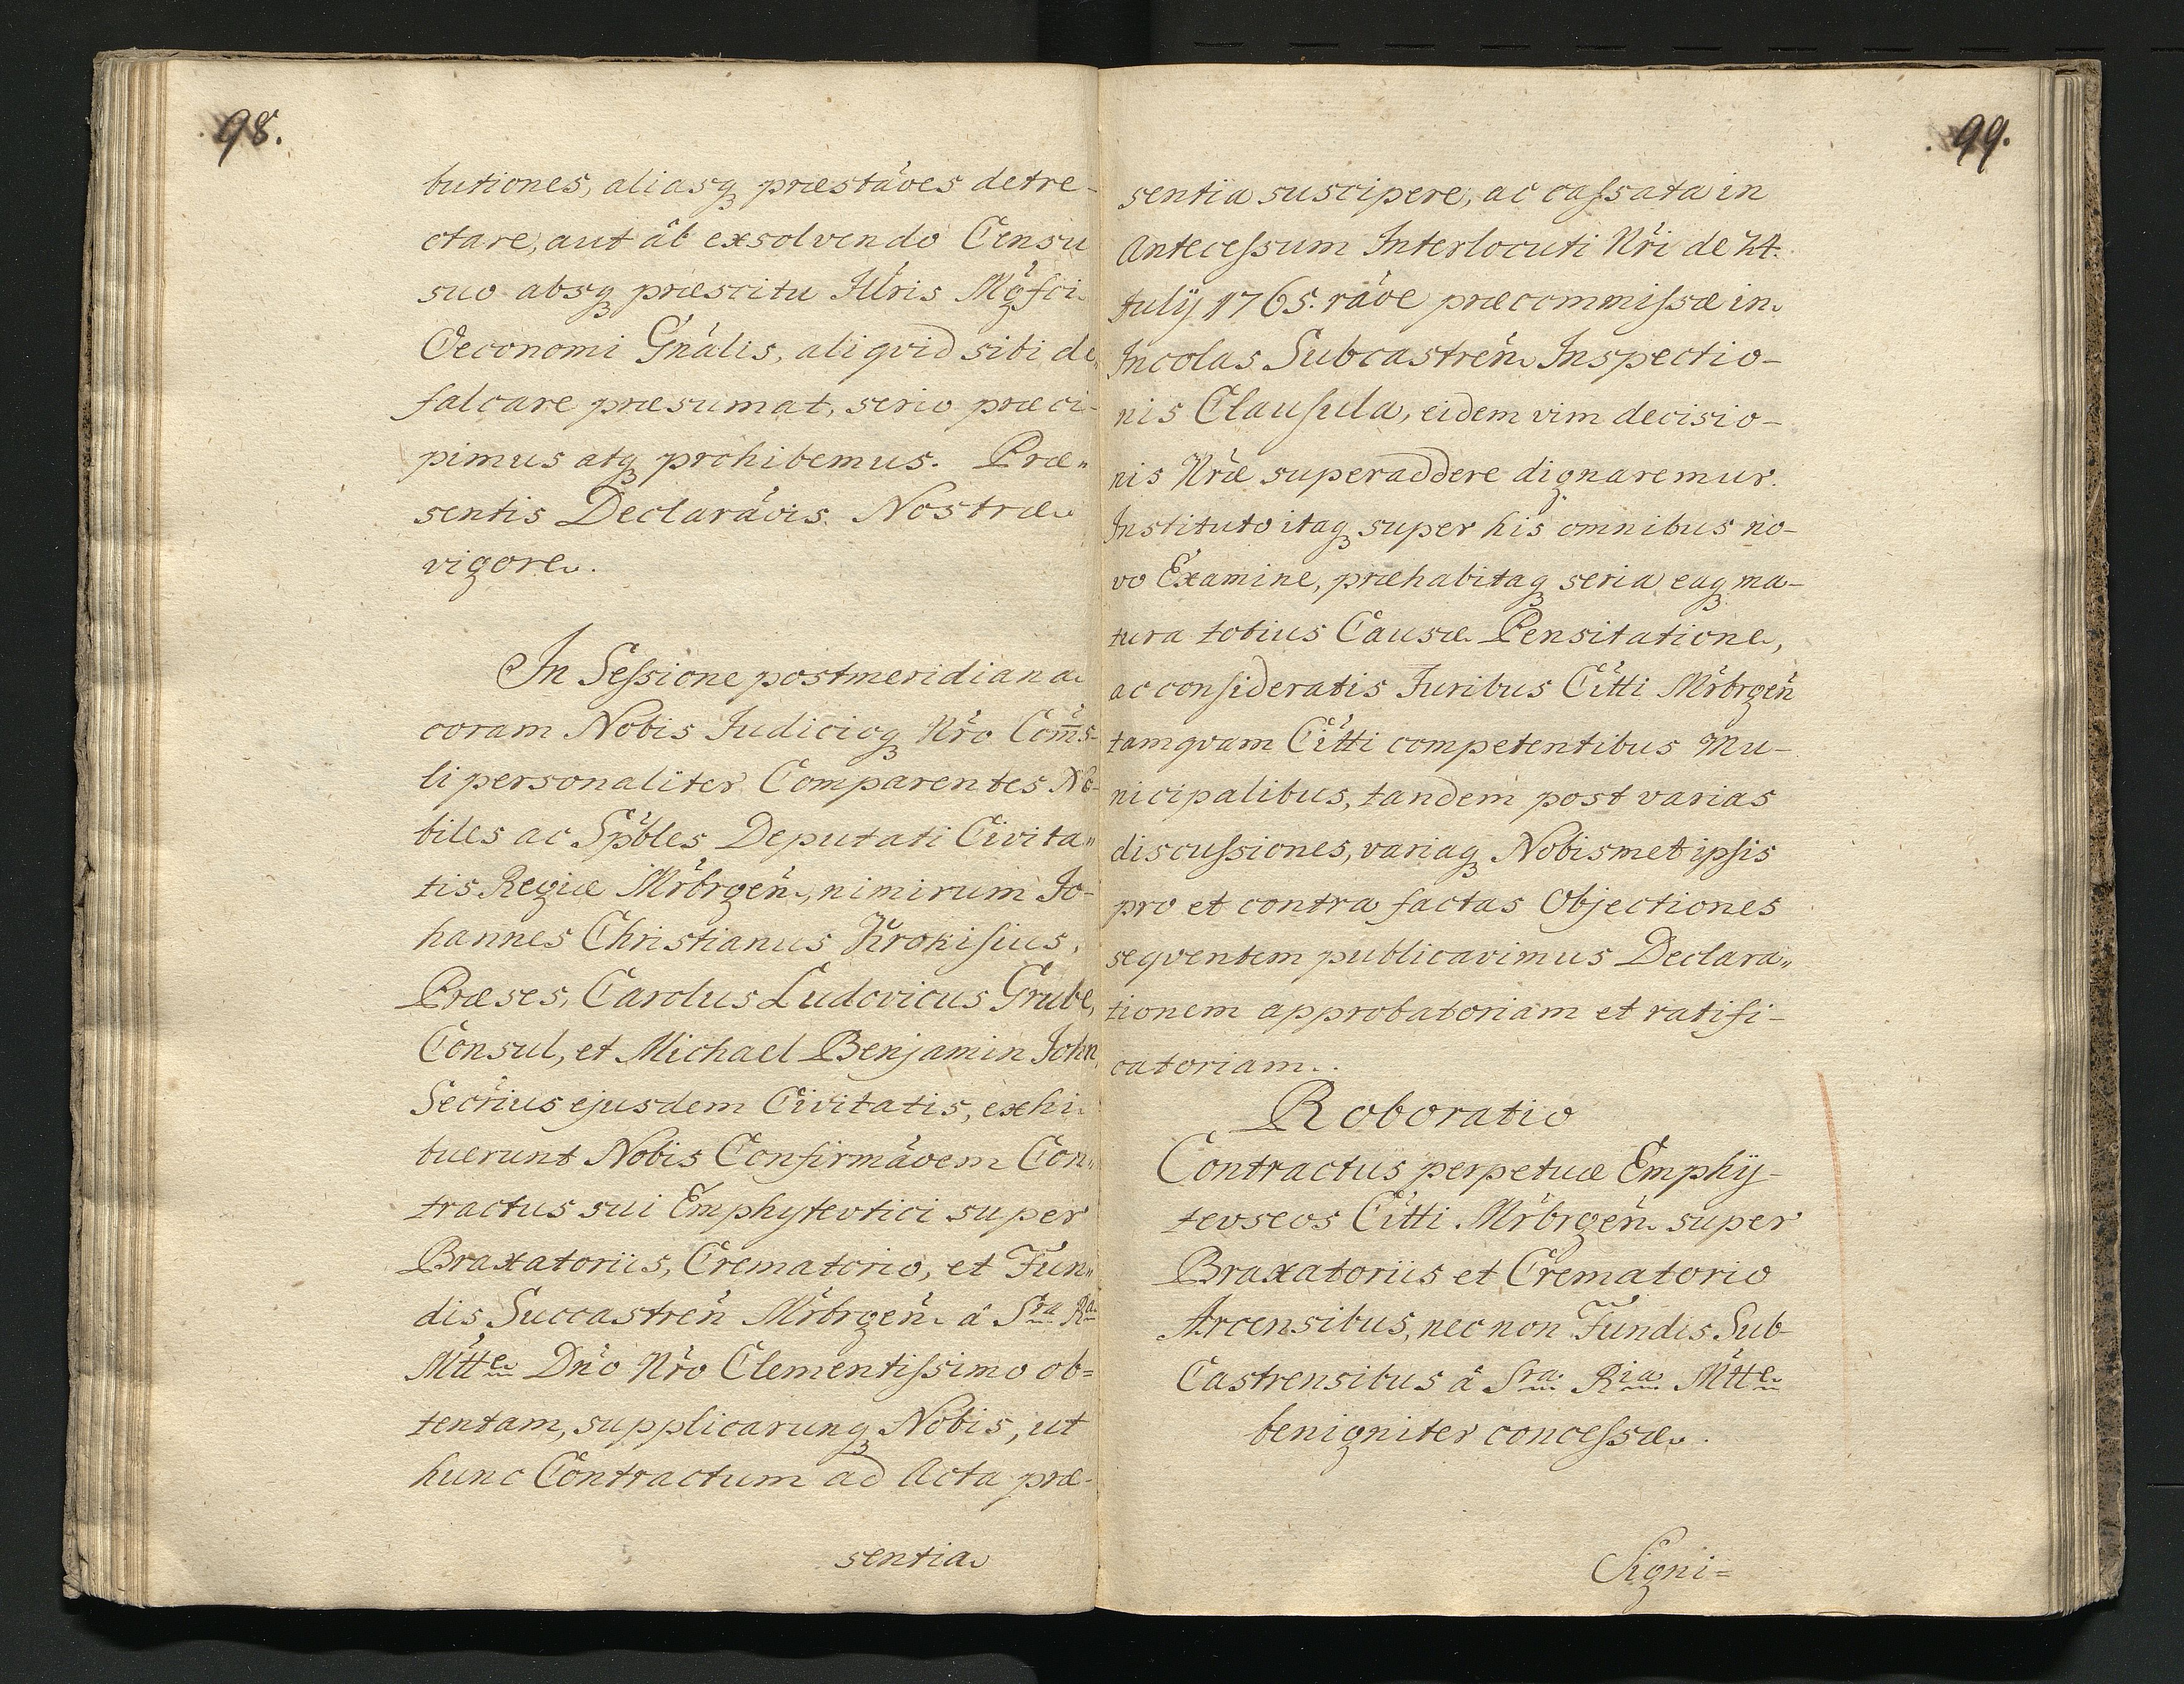 98.
butiones, aliasq₃ præstãves detre-
ctare, aut ab exsolvendo Censu
suo absq₃ præscitu Illris Mgfci
Oeconomi Gnãlis, aliqvid sibi de„
falcare præsumat, serio præci-
pimus atq₃ prohibemus. Præ„
sentis Declarãois Nostræ
vigore.
In Seſsione postmeridiana
coram Nobis Judicioq₃ Nro Com̃s-
li personaliter Comparentes No-
biles ac Spbles Deputati Civita„
tis Regiæ Mrbrgeñ, nimirum Jo-
hannes Christianus Krokisius,
Præses, Carolus Ludovicus Grube,
Consul, et Michael Benjamin John,
Secrius ejusdem Civitatis, exhi-
buerunt Nobis Confirmãoem Con„
tractus sui Emphytevtici super
Braxatoriis, Crematorio, et Fun„
dis Succastreñ Mrbrgeñ â Sra Ra
Mtte Dno Nro Clementiſsimo ob=
tentam, supplicarunq₃ Nobis, ut
hunc Contractum ad Acta præ-
sentia
99.
sentia suscipere, ac caſsata in
Anteceſsum Interlocuti Nri de 24.
July 1765. rãoe præcommiſsæ in
Incolas Subcastreñ Inspectio-
nis Clauſula, eidem vim decisio-
nis Nræ superaddere dignaremur.
Instituto itaq₃ super his omnibus no-
vo Examine, præhabitaq₃ seria eaq₃ ma-
tura totius Causæ Pensitatione,
ac conſideratis Juribus Citti Mrbrgeñ
tamqvam Citti competentibus Mu-
nicipalibus, tandem post varias
discuſsiones, variaq₃ Nobismet ipſis
pro et contra factas Objectiones
seqventem publicavimus Declara„
tionem approbatoriam et ratifi-
catoriam.
Roboratio
Contractus perpetuæ Emphÿ-
tevseos Citti Mrbrgeñ super
Braxatoriis et Crematorio
Arcensibus, nec non Fundis Sub-
Castrensibus â Sra Ria Mtte
benigniter conceſsæ.
Signi=